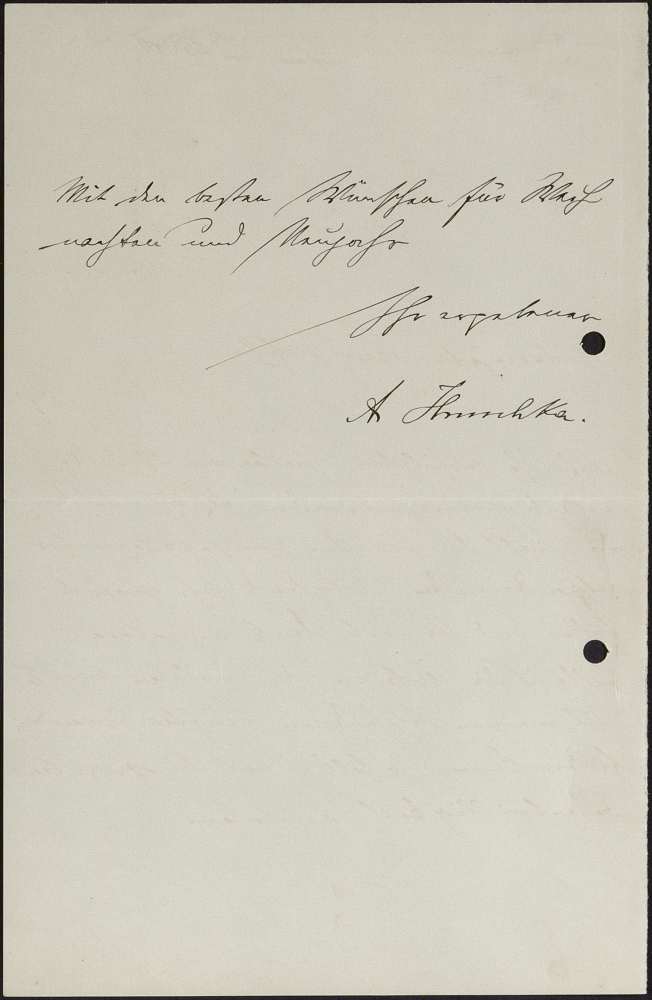 Mit den besten Wünschen für Weih
nachten und Neujahr
Ihr ergebener
A Hruschka.